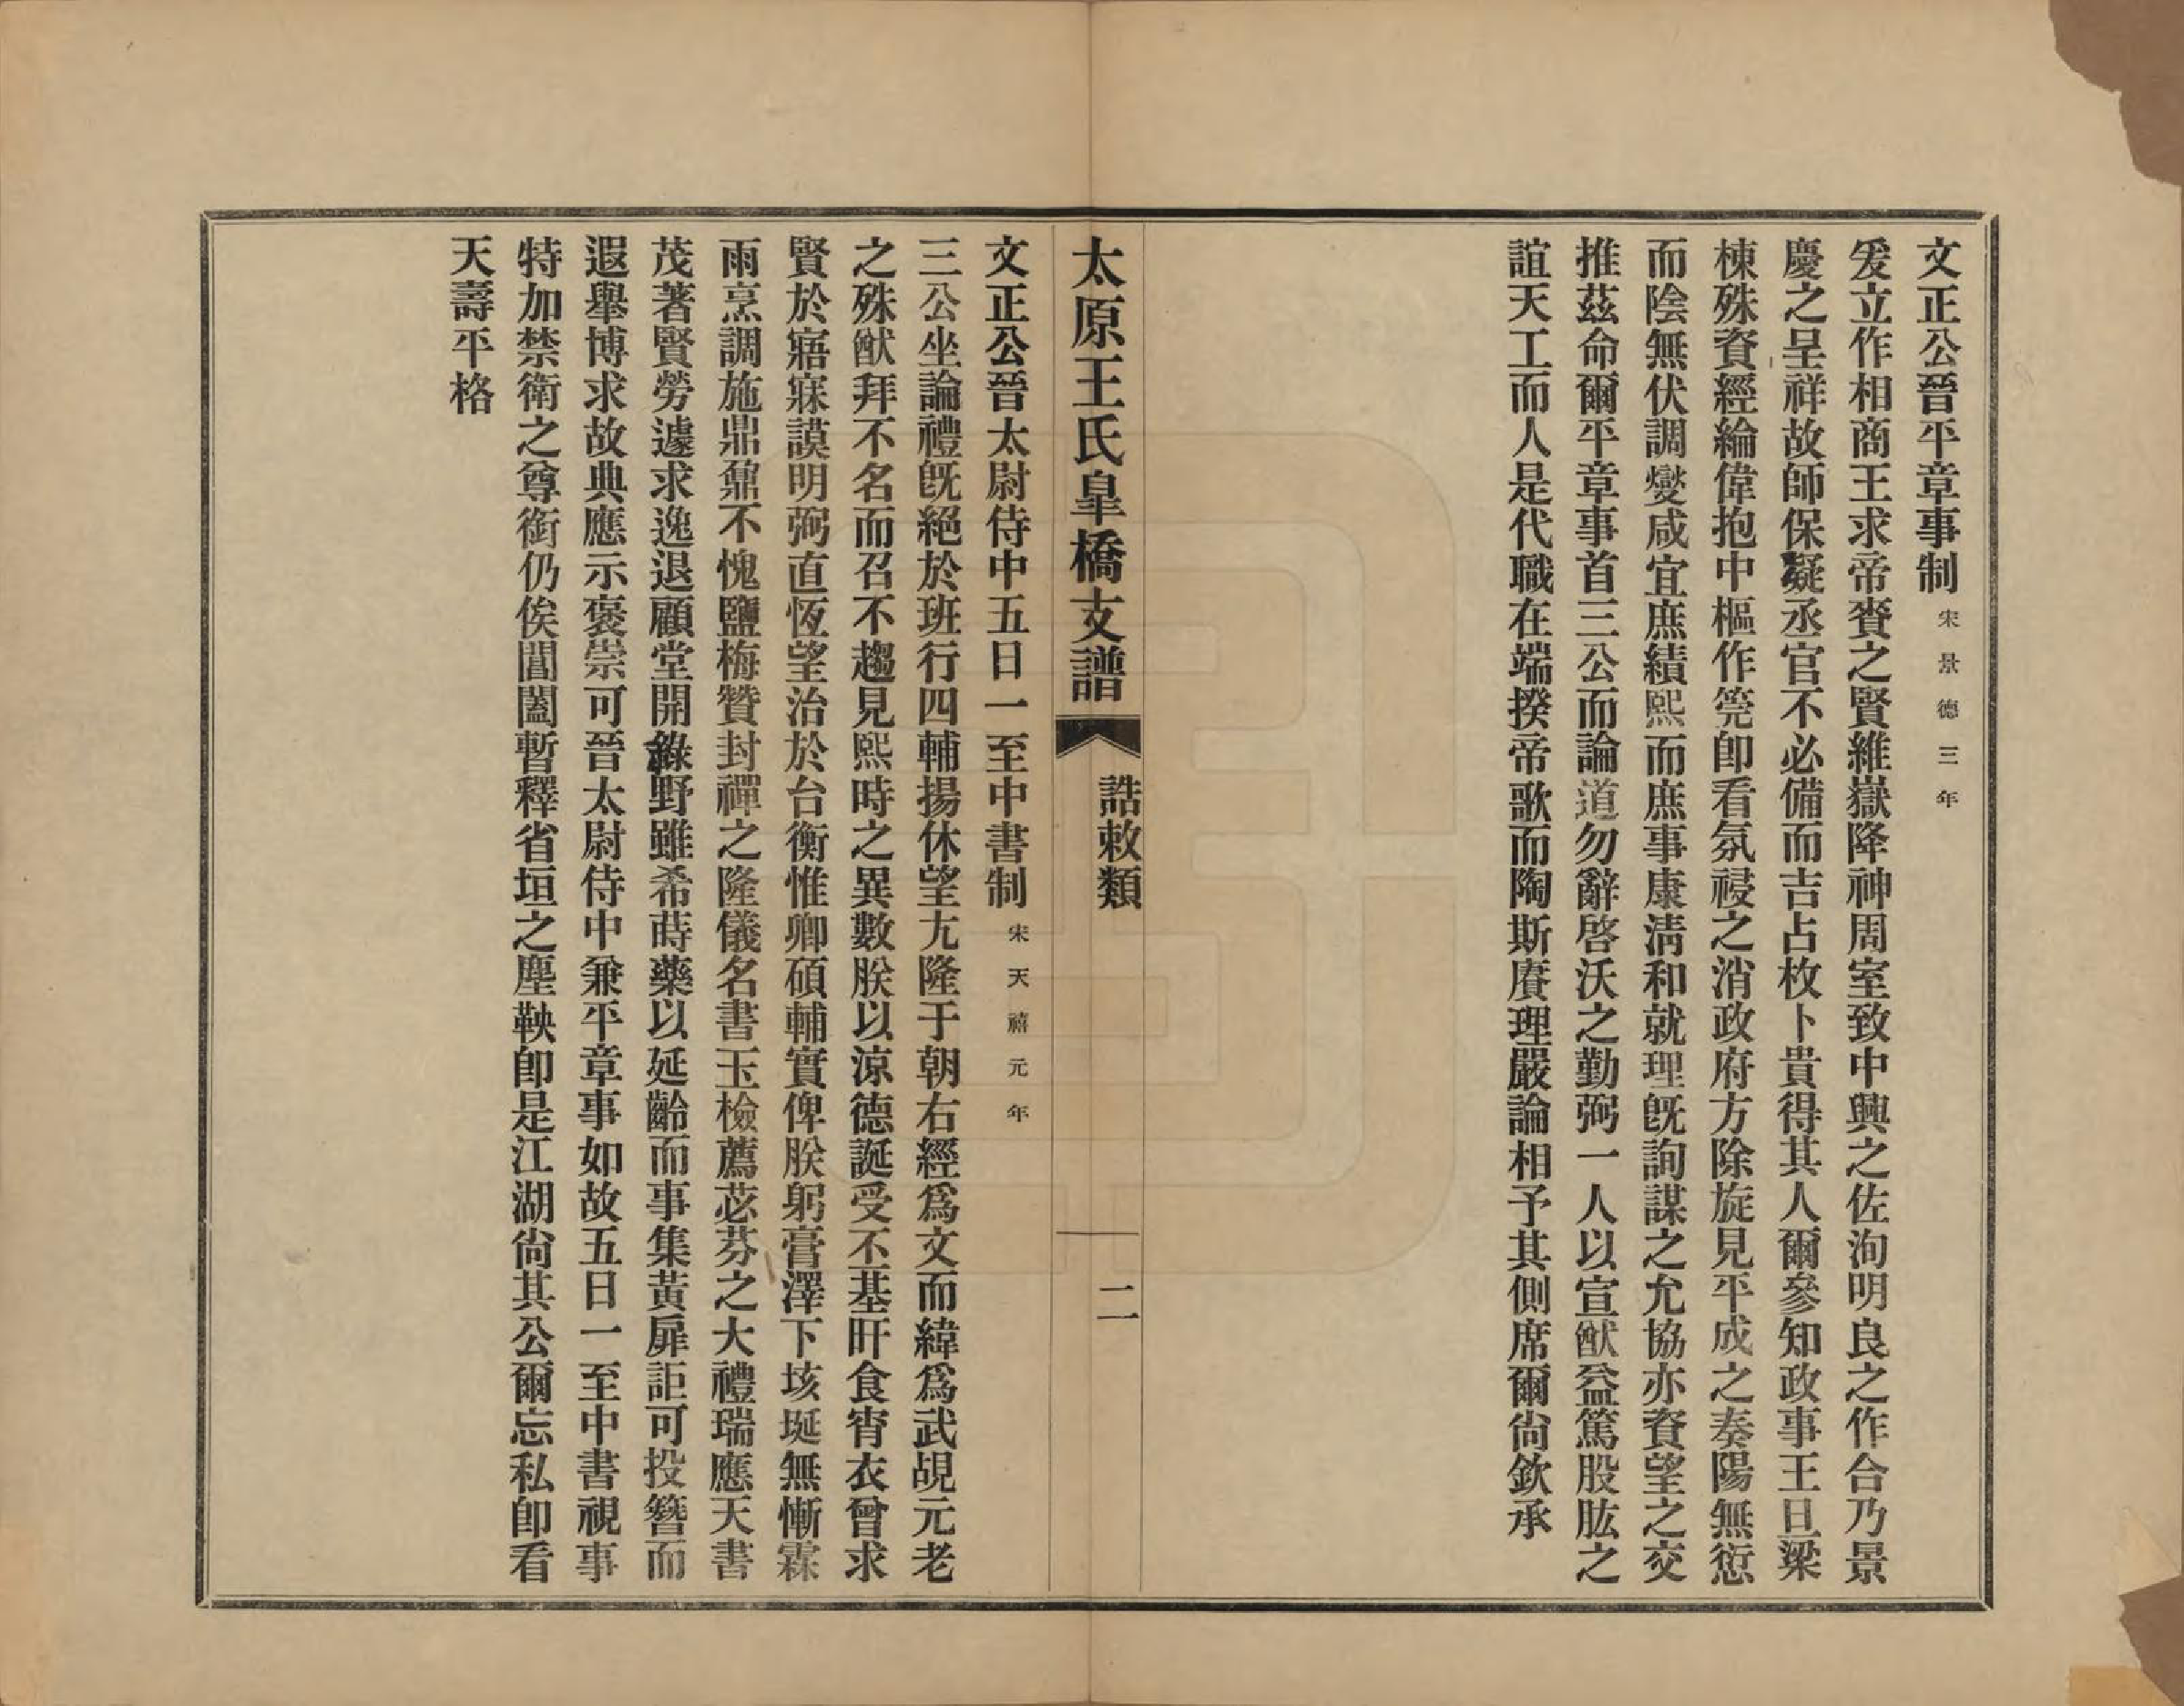 文正公晉平章事制宋景德三年
爰立作相商王求帝賚之賢維嶽降神周室致中興之佐洵明良之作合乃景
慶之呈祥故師保凝丞官不必備而吉占枚卜貴得其人爾參知政事王旦梁
棟殊資經綸偉抱中樞作筦卽看氛祲之消政府方除旋見平成之奏陽無愆
而陰無伏調燮咸宜庶績熙而庶事康淸和就理旣詢謀之允協亦資望之交
推茲命爾平章事首三公而論道勿辭啓沃之勤弼一人以宣猷益篤股肱之
誼天工而人是代職在端揆帝歌而陶斯賡理嚴論相予其側席爾尙欽承
太原王氏皐橋支譜
誥敕類
二
文正公晉太尉侍中五日一至中書制宋天禧元年
三公坐論禮旣絕於班行四輔揚休望尤隆于朝右經爲文而緯爲武覘元老
之殊猷拜不名而召不趨見熙時之異數朕以涼德誕受丕基旰食宵衣曾求
賢於寤寐謨明弼直恆望治於台衡惟卿碩輔實俾朕躬膏澤下垓埏無慚霖
雨烹調施鼎鼐不愧鹽梅贊封禪之隆儀名書玉檢薦苾芬之大禮瑞應天書
茂著賢勞遽求逸退顧堂開綠野雖希蒔藥以延齡而事集黃扉詎可投簪而
遐舉博求故典應示褒崇可晉太尉侍中兼平章事如故五日一至中書視事
特加禁衛之尊銜仍俟閶闔暫釋省垣之塵鞅卽是江湖尙其公爾忘私卽看
天壽平格